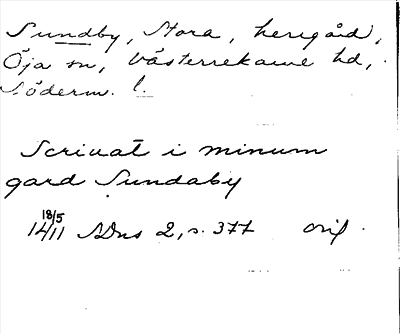 Sundby, Stora, herrgård,
Öja sn, Västerrekarne hd,
Söderm. l.
Scriuat i minum
gard Sundaby
18/5
1411 SDns 2, s. 377 orig.